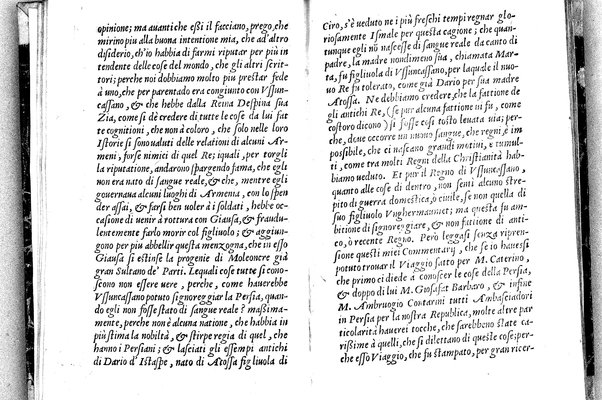 opinione; ma auanti che essi il facciano, prego, che
mirino piu alla buona intentione mia, che ad'altro
disiderio, ch'io habbia di farmi riputar per più in
tendente delle cose del mondo, che gli altri scrit-
tori; perche noi dobbiamo molto piu prestar fede
à uno, che per parentado era congiunto con Vssun-
cassano, & che hebbe dalla Reina Despina sùa
Zia, come si dè credere di tutte le cose da lui fat
te cognitioni, che non à coloro, che solo nelle loro
Istorie si sono ualuti delle relationi di alcuni Ar-
meni, forse nimici di quel Re; iquali, per torgli
la riputatione, andarono spargendo fama, che egli
non era nato di sangue reale, & che, mentre egli
gouernaua alcuni luoghi di Armenia, con lo spen
der assai, & farsi ben uoler à i soldati, hebbe oc-
casione di uenir à rottura con Giausa, & fraudu-
lentemente farlo morir col figliuolo; & aggiun-
gono per piu abbellir questa menzogna, che in esso
Giausa si estinse la progenie di Moleoncre già
gran Sultano de' Parti. Lequali cose tutte si cono-
scono non essere uere, perche, come hauerebbe
Vssuncassano potuto signoreggiar la Persia, quan-
do egli non fosse stato di sangue reale? massima-
mente, perche non è alcuna natione, che habbia in
più stima la nobiltà, & stirpe regia di quel, che
hanno i Persiani; & lasciati gli essempi antichi
di Dario d'Istaspe, nato di Atossa figliuola di
Ciro, s'è veduto ne i più freschi tempi regnar glo-
riosamente Ismale per questa cagione; che quan-
tunque egli nõ nascesse di sangue reale da canto di
padre, la madre nondimeno sùa, chiamata Mar-
ta, fu figliuola di Vssuncassano, per laquale il nuo-
uo Re fu tolerato, come già Dario per sùa madre
Atossa. Ne dobbiamo credere, che la fattione de
gli antichi Re, (se pur alcuna fattione in fu, come
costoro dicono) si fosse così tosto leuata via; per-
che, doue occorre un nuouo sangue, che regni, è im
possibile, che ci nascano grandi motiui, e tumul-
ti, come tra molti Regni della Christianità hab-
biamo ueduto. Et pur il Regno di Vssuncassano,
quanto alle cose di dentro, non sentì alcuno stre-
pito di guerra domestica, ò ciuile, se non quella di
suo figliuolo Vnghermaumet; ma questa fu am-
bitione di signoreggiare, & non fattione di anti-
co, ò recente Regno. Però leggasi senza ripren-
sione questi miei Commentarij, che se io hauessi
potuto trouar il Viaggio fatto per M. Caterino,
che primo ci diede à conoscer le cose della Persia,
& doppo di lui M. Giosafat Barbaro, & infine
M. Ambruogio Contarini tutti Ambasciadori
in Persia per la nostra Republica, molte altre par
ticolarità hauerei tocche, che sarebbeno state ca-
rissime à quelli, che si dilettano di queste cose; per-
che esso Viaggio, che fu stampato, per gran ricer-